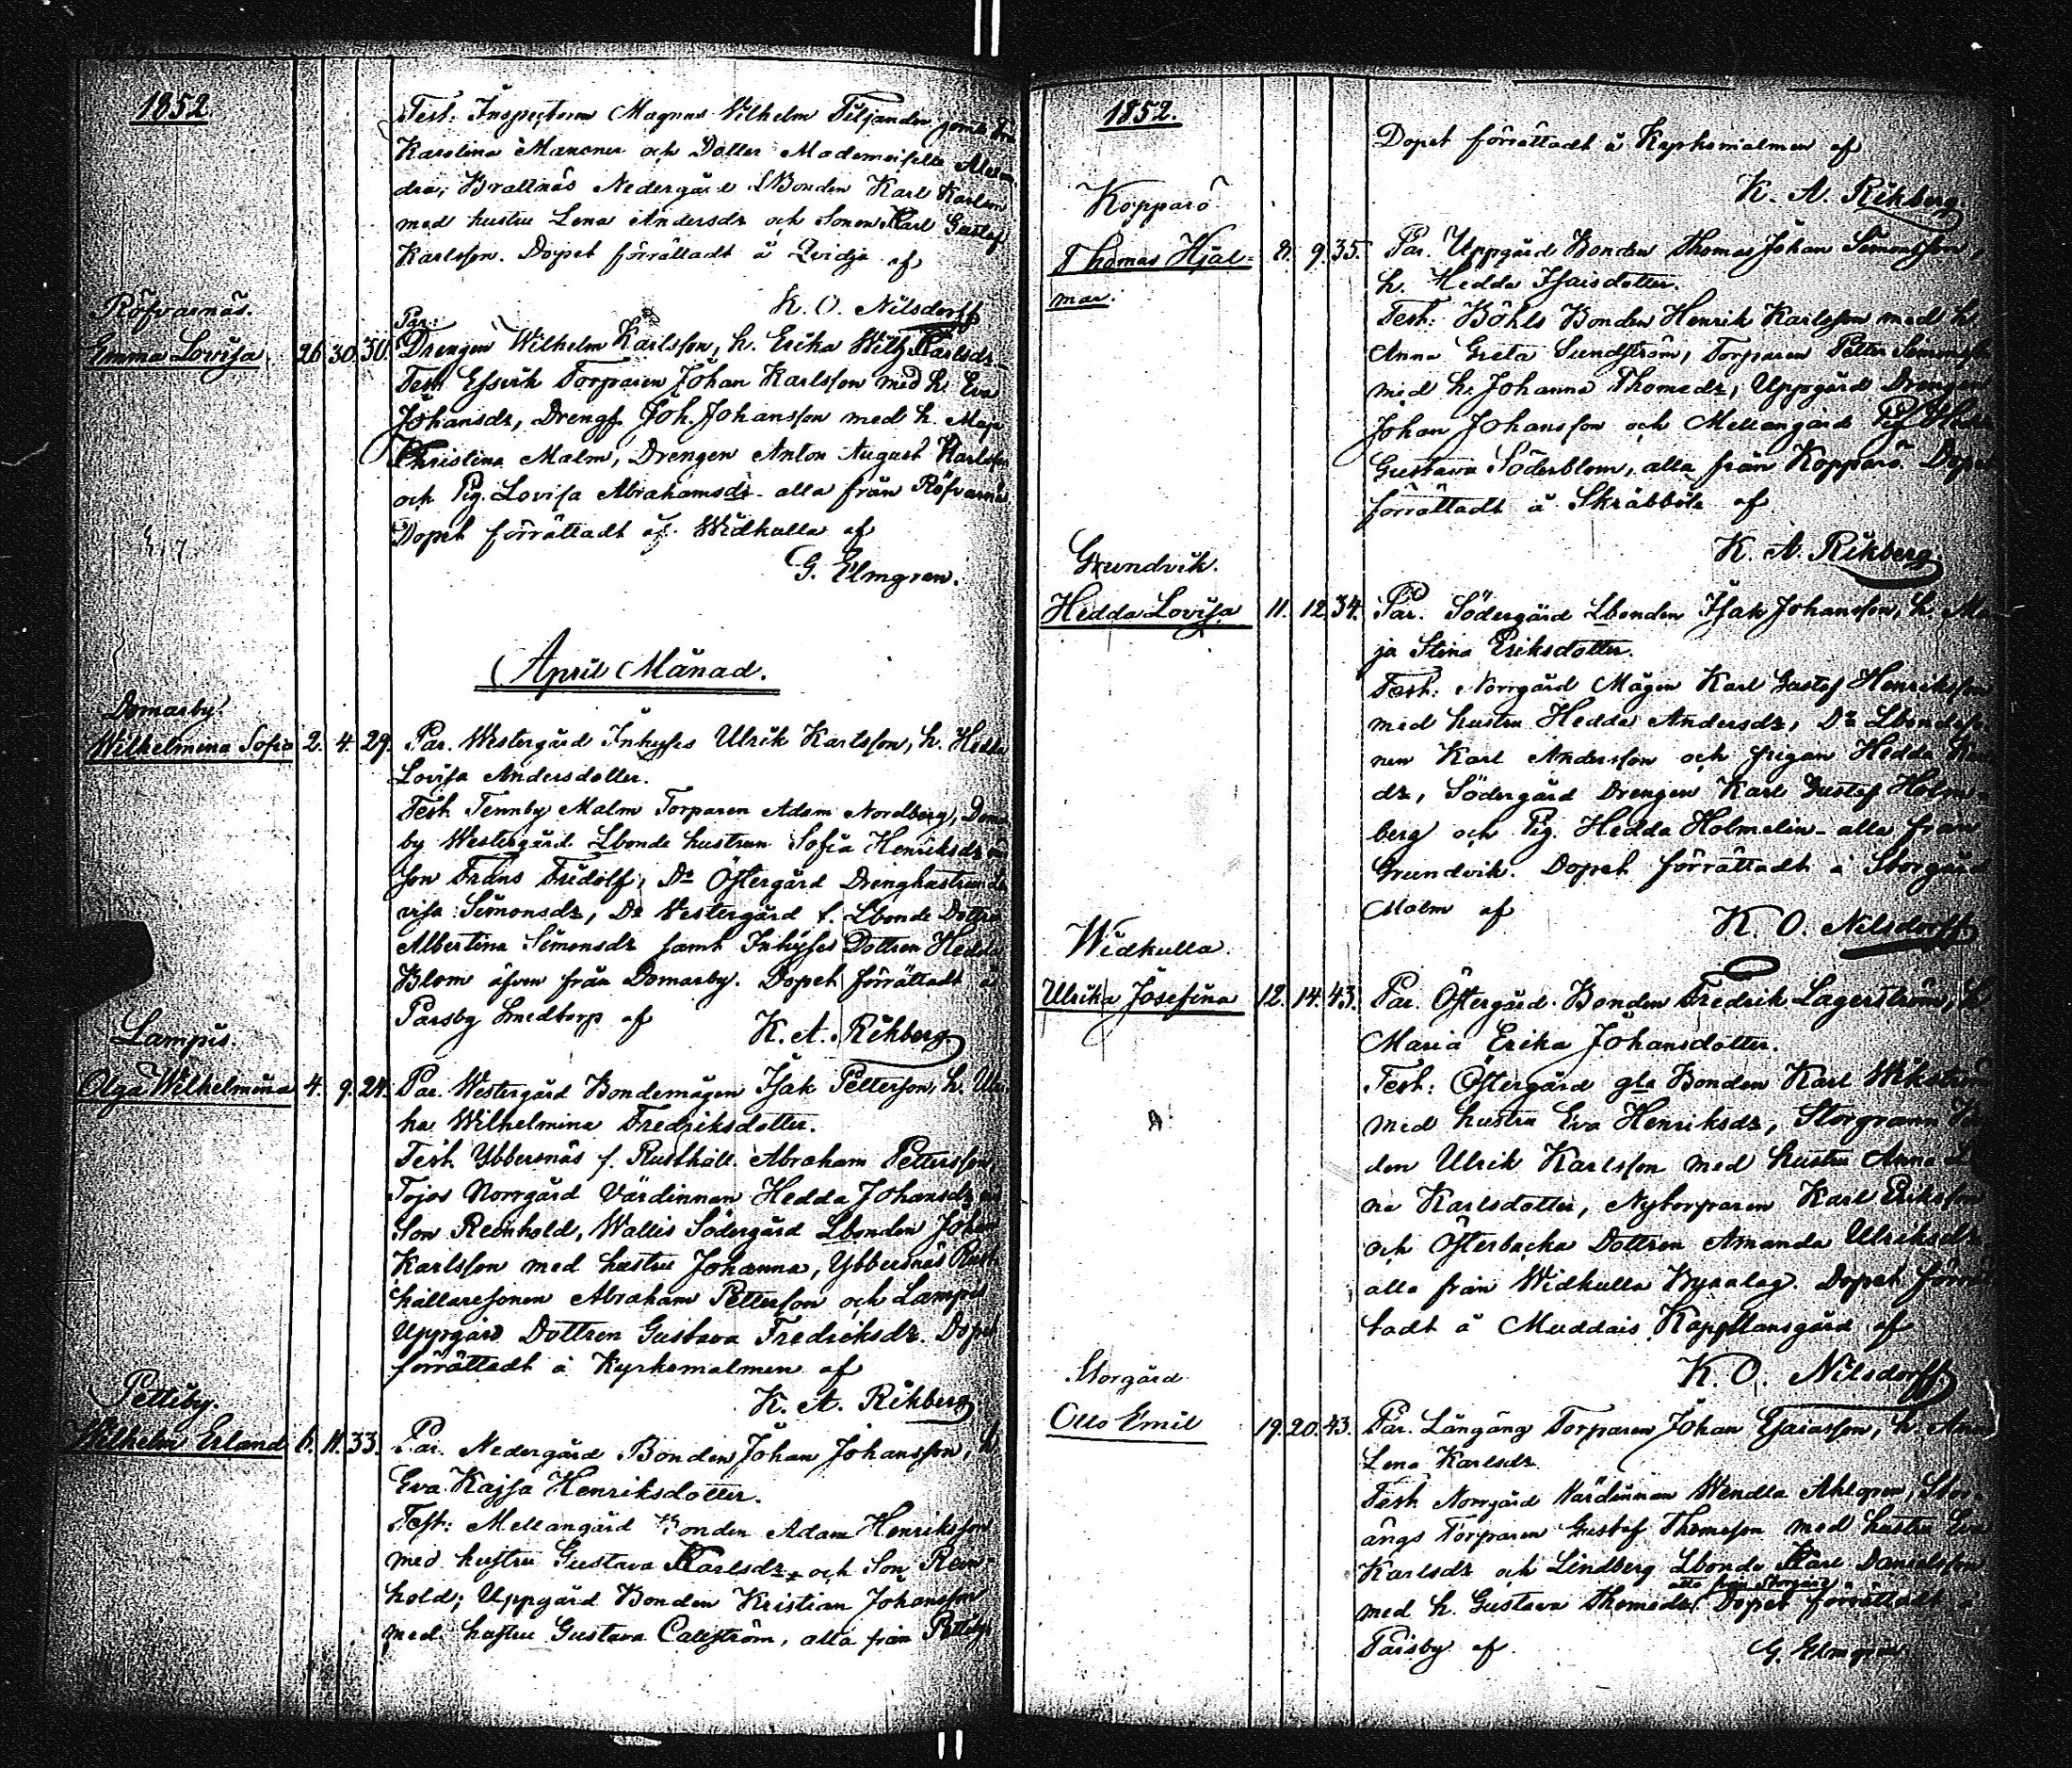 1852.
Test: Inspectoren Magnus Wilhelm Tiljander jemte Fru
Karolina Mansner och Dotter Mademoiselle Alexan
dra, Brattnäs Nedergård LBonden Karl Karlsson
med hustru Lena Andersdr och Sonen Karl Gustaf
Karlsson. Dopet förrättadt å Qvidja af
K. O. Nilsdorff
Röfvarnäs.
Emma Lovisa 26 30. 30.
Par:
Drengen Wilhelm Karlsson, h. Erika Wilh. Karlsdr
Test: Essvik Torparen Johan Karlsson med h. Eva
Johansdr, Drengf. Joh. Johansson med h. Maja
Christina Malm, Drengen Anton August Karlsson
och Pig. Lovisa Abrahamsdr - alla från Röfvarnäs
Dopet förrättadt af. Widkulla af
G. Elmgren.
April Månad.
Domarby.
Wilhelmina Sofia 2. 4. 29.
Par. Westergård Inhyses Ulrik Karlsson, h. Hedda
Lovisa Andersdotter.
Test. Tennby Malm Torparen Adam Nordberg, Domar
by Westergård Lbonde hustrun Sofia Henriksdr
son Frans Fridolf, Do Östergård Drenghustrun Lo
visa Simonsdr, Do Westergård f. Lbonde Dottren
Albertina Simonsdr samt Inhyses Dottren Hedda
Blom äfven från Domarby. Dopet förrättadt å
Parsby Smedtorp af K. A. Rikberg
Lampis.
Olga Wilhelmina 4. 9. 24.
Par. Westergård Bondemågen Isak Pettersson, h. Ulri
ka Wilhelmina Fredriksdotter.
Test. Ybbersnäs f. Rusthåll. Abraham Pettersson,
Tojos Norrgård Värdinnan Hedda Johansdr
Son Reinhold, Wallis Södergård Lbonden Johan
Karlsson med hustru Johanna, Ybbersnäs Rust
hållaresonen Abraham Pettersson och Lampis
Uppgård Dottren Gustava Fredriksdr. Dopet
förrättadt å Kyrkomalmen af
K. A. Rikberg
Pettiby.
Wilhelm Erland 6. 11. 33.
Par. Nedergård Bonden Johan Johansson, h.
Eva Kajsa Henriksdotter.
Test: Mellangård Bonden Adam Henriksson
med hustru Gustava Karlsdr och Son Rein
hold; Uppgård Bonden Kristian Johansson
med hustru Gustava Calström, alla från Pettiby.
1852.
Dopet förrättadt å Kyrkomalmen af
K. A. Rikberg.
Kopparö
Thomas Hjal= 8. 9. 35.
mar.
Par. Uppgård Bonden Thomas Johan Simonsson,
h. Hedda Isaisdotter.
Test: Böhls Bonden Henrik Karlsson med h.
Anna Greta Sundström, Torparen Petter Simonsson
med h. Johanna Thomadr, Uppgård Drengen
Johan Johansson och Mellangård Pig. Hedda
Gustava Söderblom, alla från Kopparö. Dopet
förrättadt å Skräbböle af
K. A. Rikberg.
Grundvik.
Hedda Lovisa 11. 12. 34.
Par. Södergård Lbonden Isak Johansson, h. Ma
ja Stina Eriksdotter.
Test: Norrgård Mågen Karl Gustaf Henriksson
med hustru Hedda Andersdr, Do Lbondeso
nen Karl Andersson och pigan Hedda
dr, Södergård Drengen Karl Gustaf Holm
berg och Pig. Hedda Holmelin - alla från
Grundvik. Dopet förrättadt i Storgård
Malm af K. O. Nilsdorff
Widkulla.
Ulrika Josefina 12. 14. 43.
Par. Östergård. Bonden Fredrik Lagerström, h.
Maria Erika Johansdotter.
Test: Östergård gla Bonden Karl Wikström
med hustru Eva Henriksdr, Storgrann Bon
den Ulrik Karlsson med hustru Anna Le
na Karlsdotter, Nytorparen Karl Eriksson
och Österbacka Dottren Amanda Ulriksdr
alla från Widkulla Byaalag. Dopet förrät
tadt å Muddais Kapellansgård af
K. O. Nilsdorff
Storgård
Otto Emil 19. 20. 43.
Par. Långäng Torparen Johan Esaiasson, h. Anna
Lena Karlsdr
Test. Norrgård Värdinnan Wendla Ahlgren, Stor=
ängs Torparen Gustaf Thomasson med hustru Eva
Karlsdr och Lindberg Lbonde Karl Danielsson
alla från Storgård
med h. Gustava Thomadr. Dopet förrättadt å
Parsby af G. Elmgren